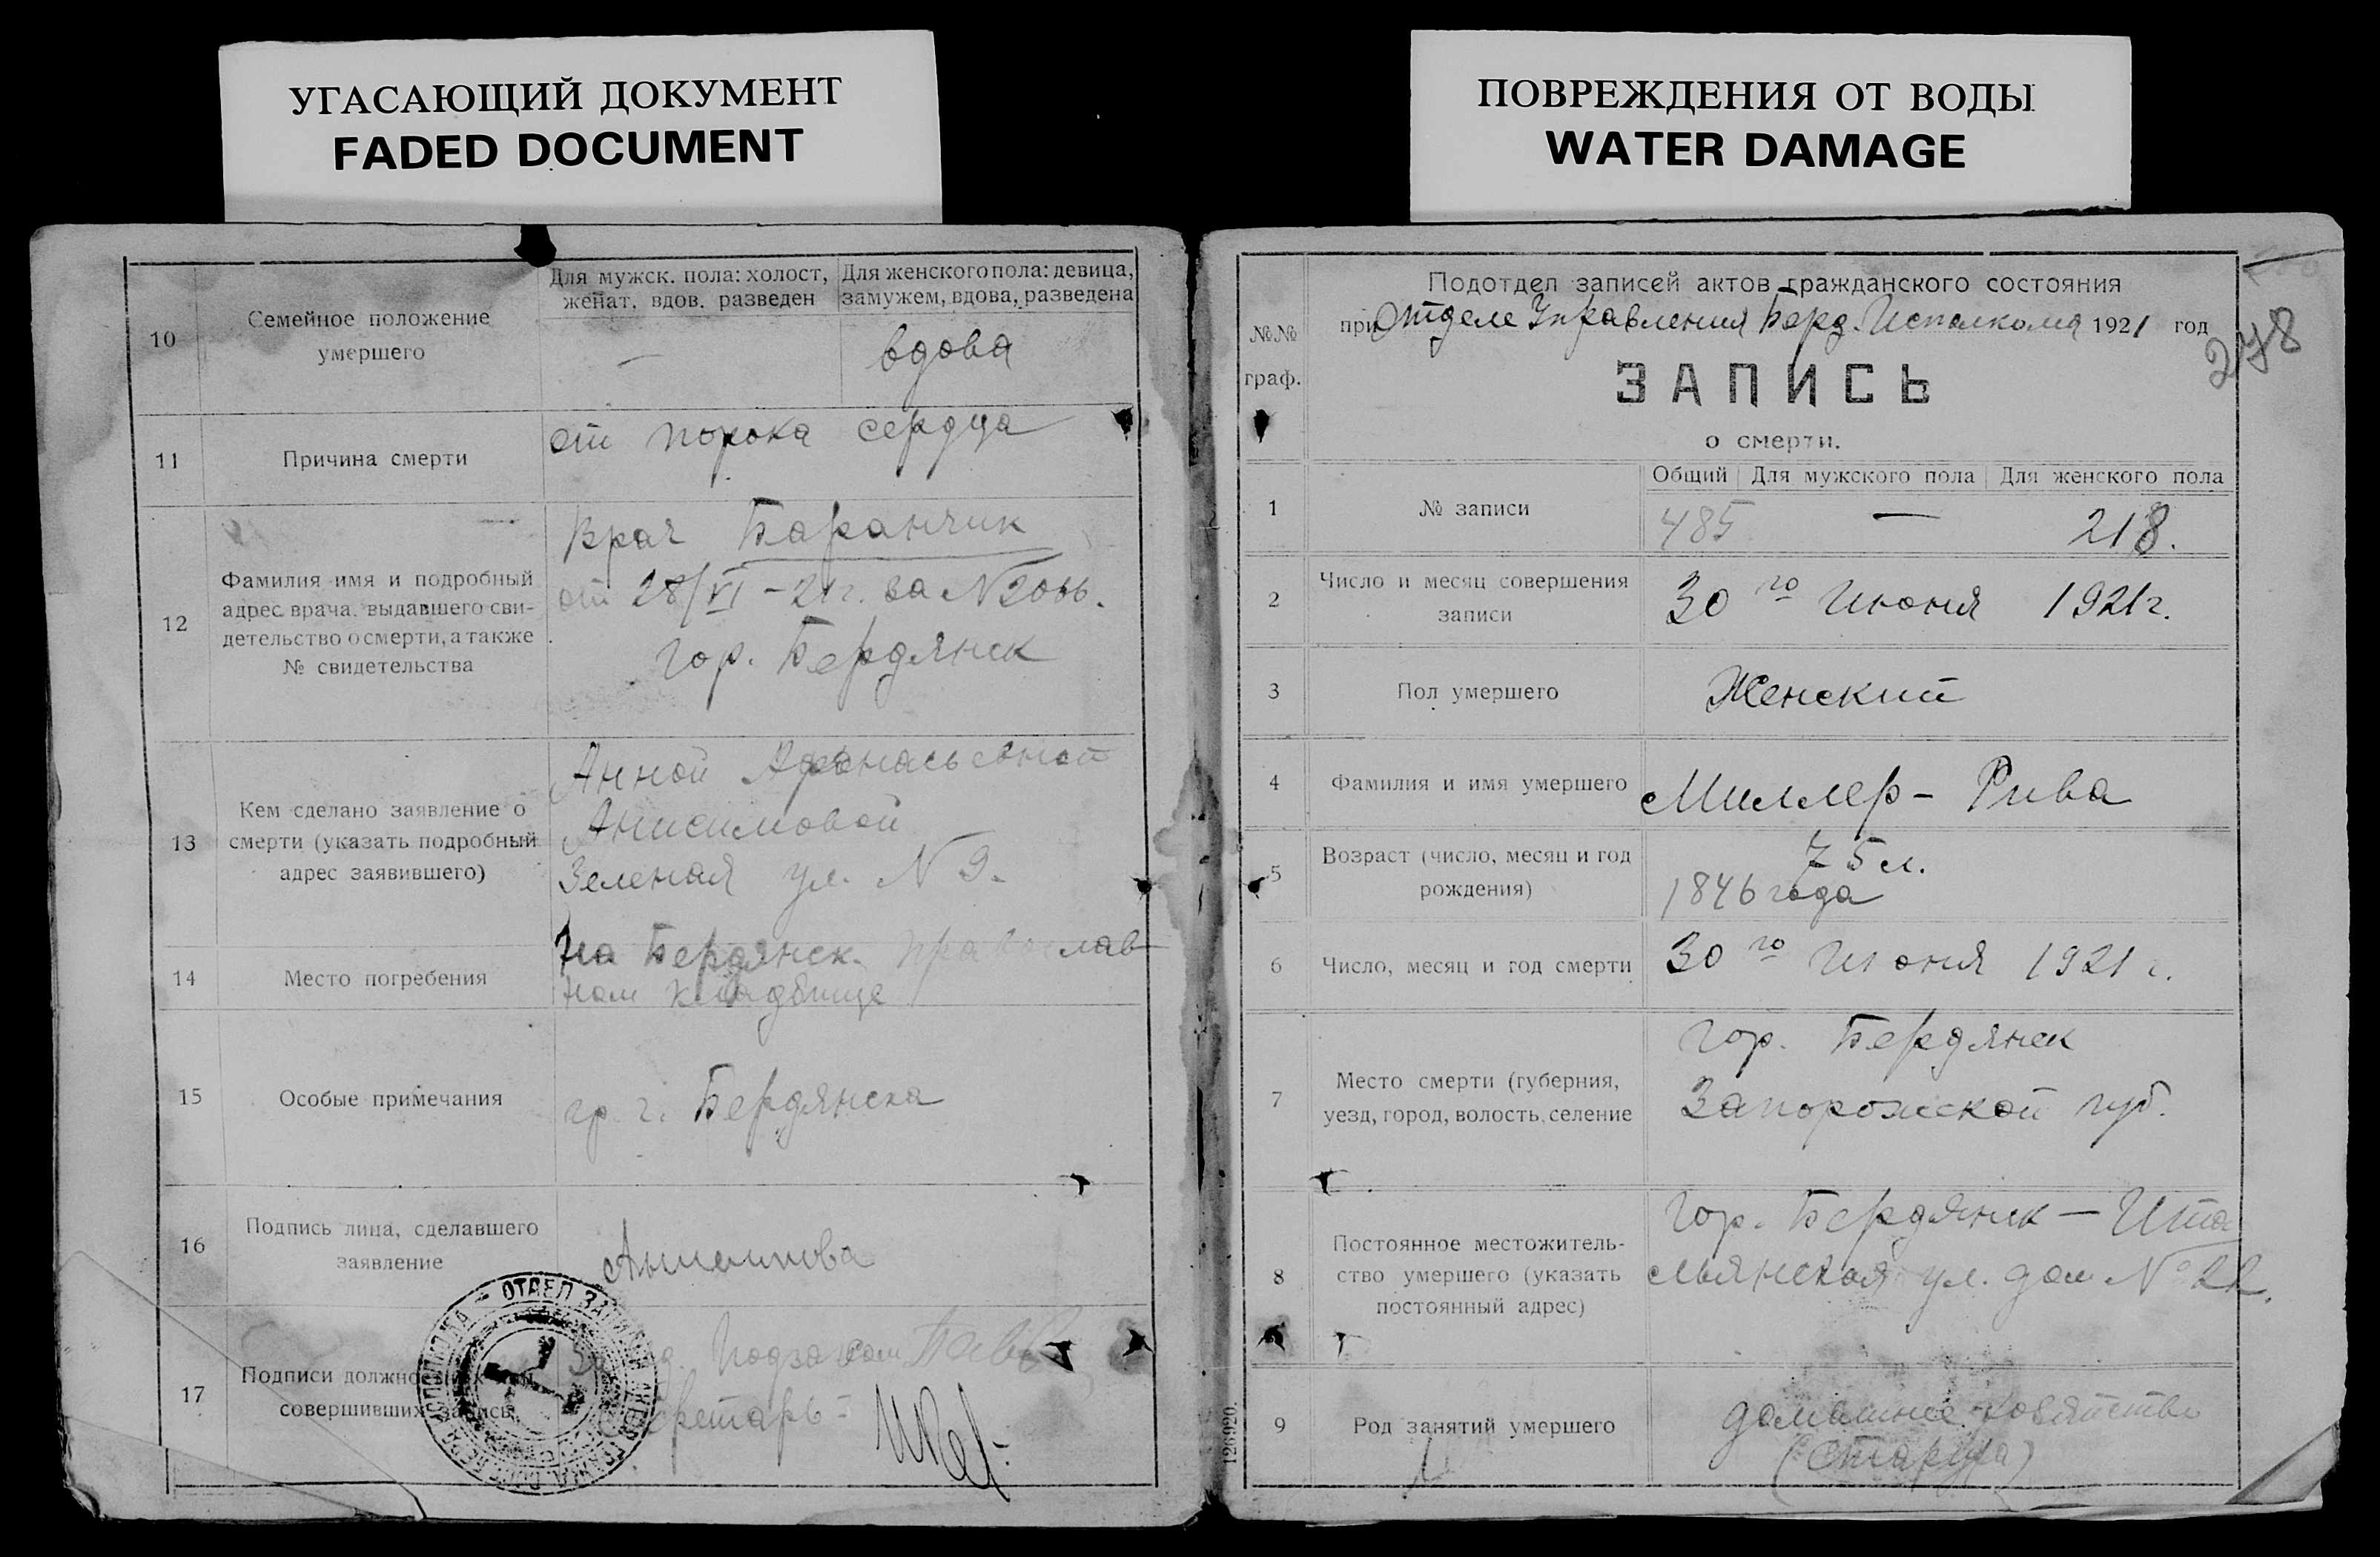 УГАСАЮЩИЙ ДОКУМЕНТ
FADED DOCUMENT
ПОВРЕЖДЕНИЯ ОТ ВОДЫ
WATER DAMAGE
10
Семейное положение
умершего
Для мужск. пола: холост,
женат. вдов. разведен
Для женского пола: девица,
замужем, вдова, разведена
—
вдова
11
Причина смерти
от порока сердца
12
Фамилия имя и подробный
адрес врача, выдавшего сви-
детельство о смерти, а также
№ свидетельства
Врач Баранчик
от 28/VI – 21 г. за №
гор. Бердянск
13
Кем сделано заявление о
смерти (указать подробный
адрес заявившего)
Анной Афанасьевной
Анисимовой
Зеленая ул. N 9.
14
Место погребения
На Бердянск. православ
ном кладбище
15
Особые примечания
гр. г. Бердянска
16
Подпись лица, сделавшего
заявление
Анисимова
17
Подписи должностных лиц
совершивших запись
Секретарь –
ОТДЕЛ ЗАПИСЕЙ АКТОВ ГРАЖД.
№№
граф.
Подотдел записей актов гражданского состояния
при Отделе Управления Берд. Исполкома 1921 год
278
ЗАПИСЬ
о смерти.
1
№ записи
Общий
Для мужского пола
Для женского пола
485 — 218.
2
Число и месяц совершения
записи
30го Июня 1921 г.
3
Пол умершего
Женский
4
Фамилия и имя умершего
Миллер – Рива
5
Возраст (число, месяц и год
рождения)
75 л.
1846 года
6
Число, месяц и год смерти
30го Июня 1921 г.
7
Место смерти (губерния,
уезд, город, волость, селение
гор. Бердянск
Запорожской губ.
8
Постоянное местожитель-
ство умершего (указать
постоянный адрес)
Гор. Бердянск – Ита
льянская ул. дом № 22.
9
Род занятий умершего
домашнее хозяйство
(старуха)
126920.